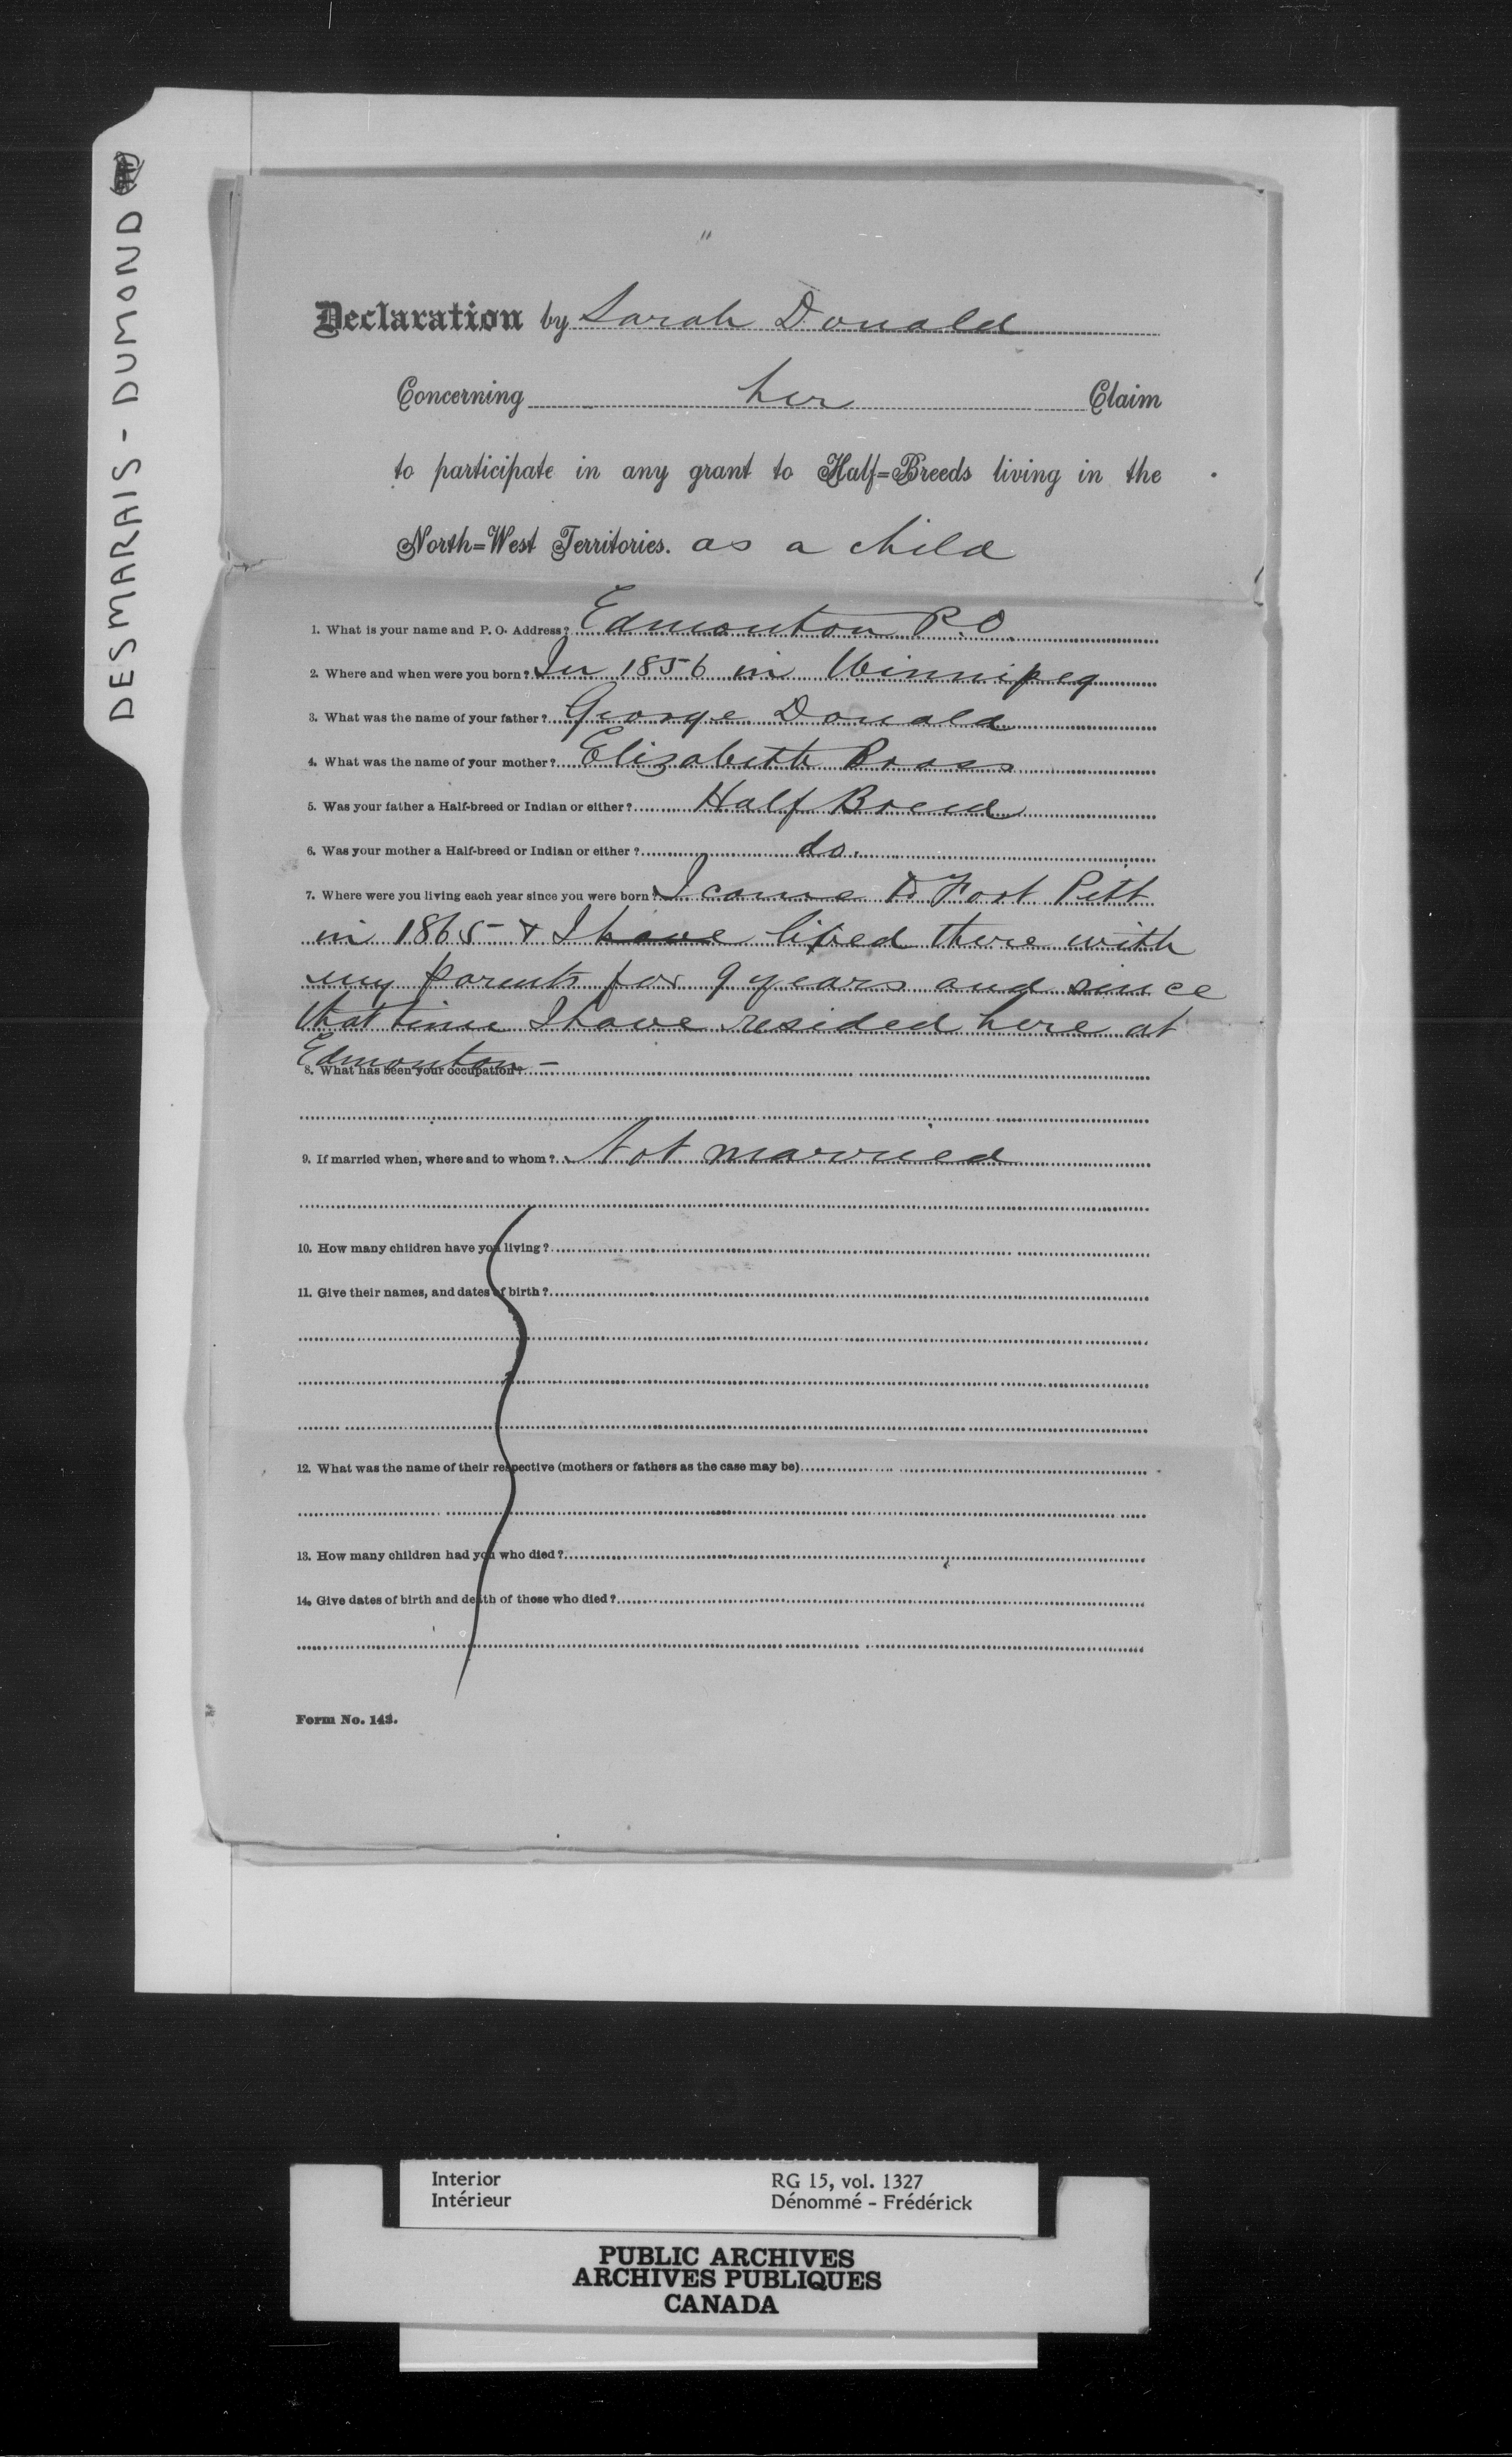 DESMARAIS - DUMOND
Declaration by Sarah Donald
Concerning her Claim
to participate in any grant to Half=Breeds living in the
North=West Territories. as a child
1. What is your name and P. O. Address? Edmonton P.O.
2. Where and when were you born? In 1856 in Winnipeg
3. What was the name of your father? George Donald
4. What was the name of your mother? Elizabeth
5. Was your father a Half-breed or Indian or either? Half Breed
6. Was your mother a Half-breed or Indian or either? do.
7. Where were you living each year since you were born? I came to Fort Pitt
in 1865 & I have lived there with
my parents for 9 years and since
that time I have resided here at
Edmonton -
8. What has been your occupation?
9. If married when, where and to whom? Not married
10. How many children have you living?
11. Give their names, and dates of birth?
12. What was the name of their respective (mothers or fathers as the case may be)
13. How many children had you who died?
14. Give dates of birth and death of those who died?
Form No. 143.
Interior RG 15, vol. 1327
Intérieur Dénommé - Frédérick
PUBLIC ARCHIVES
ARCHIVES PUBLIQUES
CANADA